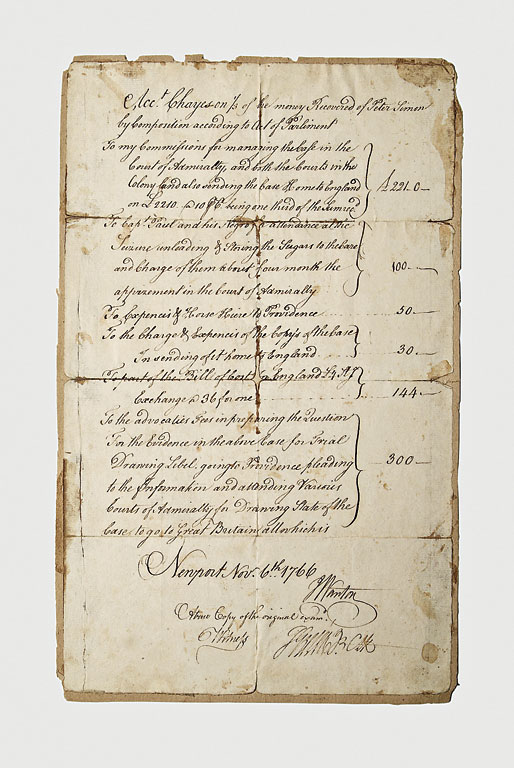 Acct. Charges on ⅓ of the money Recovered of Peter Simon
by Composition according to Act of Parliment
To my Commissions for manageing the Case in the
Court of Admiralty, and both the Courts in the
Colony and also sending the Case Home to England
on £2210. @ 10 ⅌ Ct. being one third of the £221.0—
To Capt. Paul and his Negro's attendance at the
Seizure unloading & Storing the Sugars to the Care
and Charge of them about four month the 100.—
apprizement in the Court of Admiralty
To Expencis & Horse Hiere to Providence 50—
To the Charge & Expencis of the Copys of the Case
In sending of it home to England 30.—
To part of the Bill of Cost in England £4
Exchange @ 36 for one 144.—
To the advocaties Fees in prepareing the Question
For the Evidence in the above Case for Trial
Drawing Libel, going to Providence pleading 300—
to the Information and attending Various
Courts of Admiralty for Drawing State of the
Case to go to Great Britain, all which is
Newport Novr. 6th. 1766
J Wanton
A true Copy of the original examd.
Witness